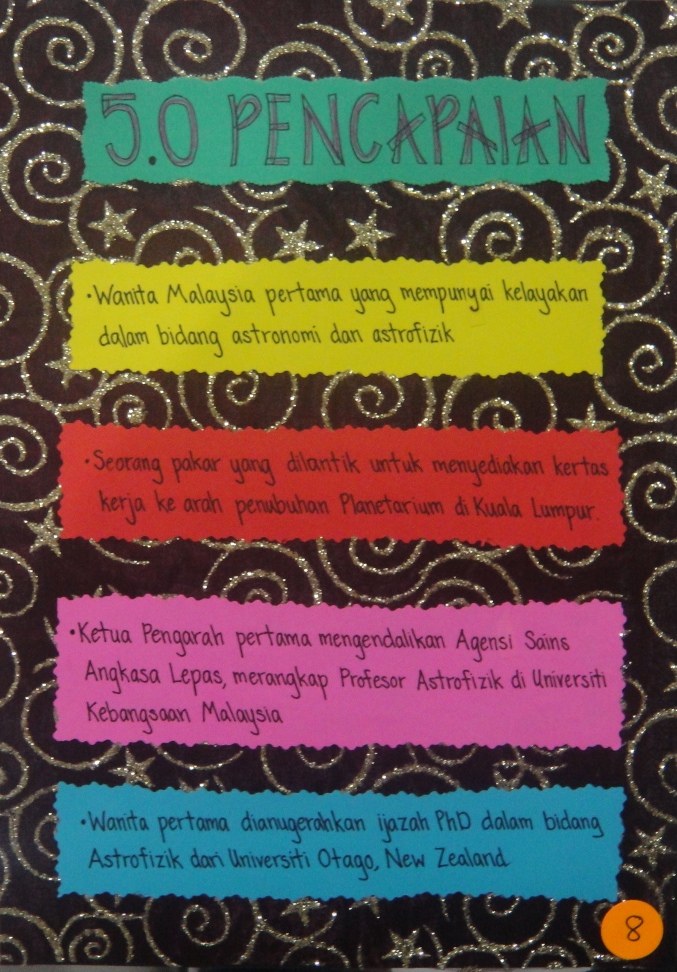 5.0 PENCAPAIAN
•Wanita Malaysia pertama yang mempunyai kelayakan
dalam bidang astronomi dan astrofizik
•Seorang pakar yang dilantik untuk menyediakan kertas
kerja ke arah penubuhan Planetarium di Kuala Lumpur.
•Ketua Pengarah pertama mengendalikan Agensi Sains
Angkasa Lepas, merangkap Profesor Astrofizik di Universiti
Kebangsaan Malaysia
•Wanita pertama dianugerahkan ijazah PhD dalam bidang
Astrofizik dari Universiti Otago, New Zealand
8